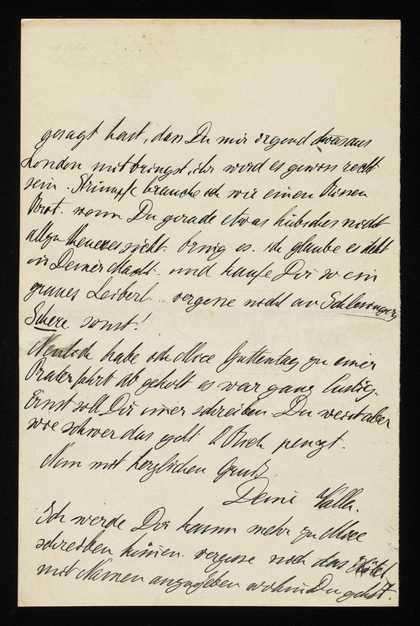 gesagt hast, dass Du mir irgend etwas aus
London mitbringst, ihr wird es gewiss recht
sein. Strümpfe brauche ich wie einen Bissen
Brot. wenn Du gerade etwas hübsches nicht
allzu theueres siehst bring es. ich glaube es steht
in Deiner Macht. und kaufe Dir so ein
graues Leiberl. vergesse nicht an
Schere sonst!
Neulich habe ich Guttentag zu einer
Praterfahrt abgeholt es war ganz lustig.
Ernst soll Dir immer schreiben Du weisst aber
wie schwer das geht
Nun mit herzlichen Gruß
Deine
Ich werde Dir kaum mehr zu
schreiben können. vergesse nicht das Hôtel
mit Namen anzugeben wohin Du gehst.